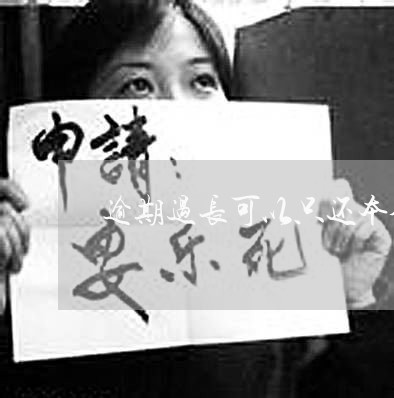 申請：
逾期過長可以只还本
安乐死